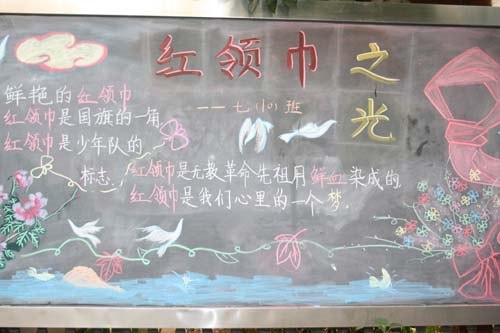 红领巾之光
——七(10)班
鲜艳的红领巾
红领巾是国旗的一角
红领巾是少年队的
标志,红领巾是无数革命先祖用鲜血染成的,
红领巾是我们心里的一个梦.